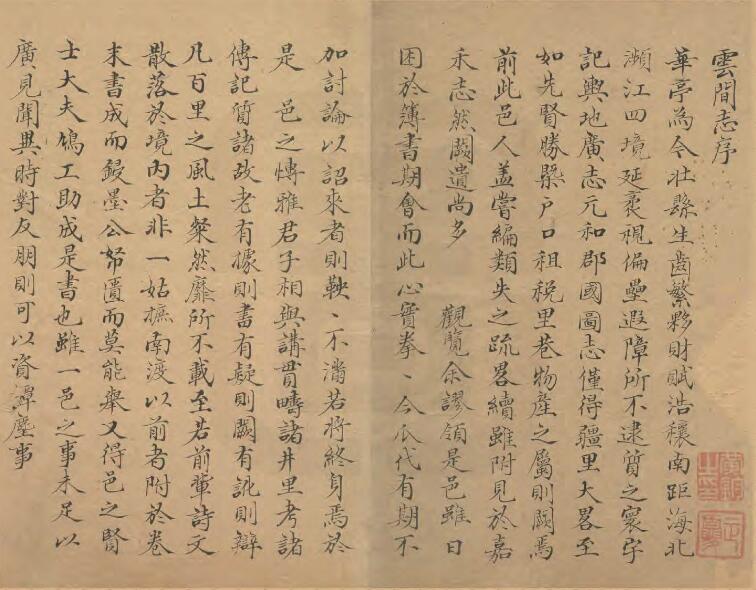 雲間志序
華亭為今壯縣生齒繁夥財賦浩穰南距海北
瀕江四境延袤視偏壘遐障所不逮質之寰宇
記輿地廣志元和郡國圖志僅得疆里大畧至
如先賢勝槩戸口租稅里巷物產之屬則闕焉
前此邑人盖嘗編類失之疏畧續雖附見於嘉
禾志然闕遺尚多 觀覽余謬領是邑雖日
困於簿書期會而此心實拳〻今瓜代有期不
加討論以詔來者則鞅〻不滿若將終身焉於
是 邑之慱雅君子相與講貫疇諸井里考諸
傳記質諸故老有據則書有疑則闕有訛則辯
凡百里之風土粲然靡所不載至若前軰詩文
散落於境內者非一姑摭南渡以前者附於卷
末書成而鋟墨公帑匱而莫能舉又得邑之賢
士大夫鳩工助成是書也雖一邑之事未足以
廣見聞異時對友朋則可以資譚麈事